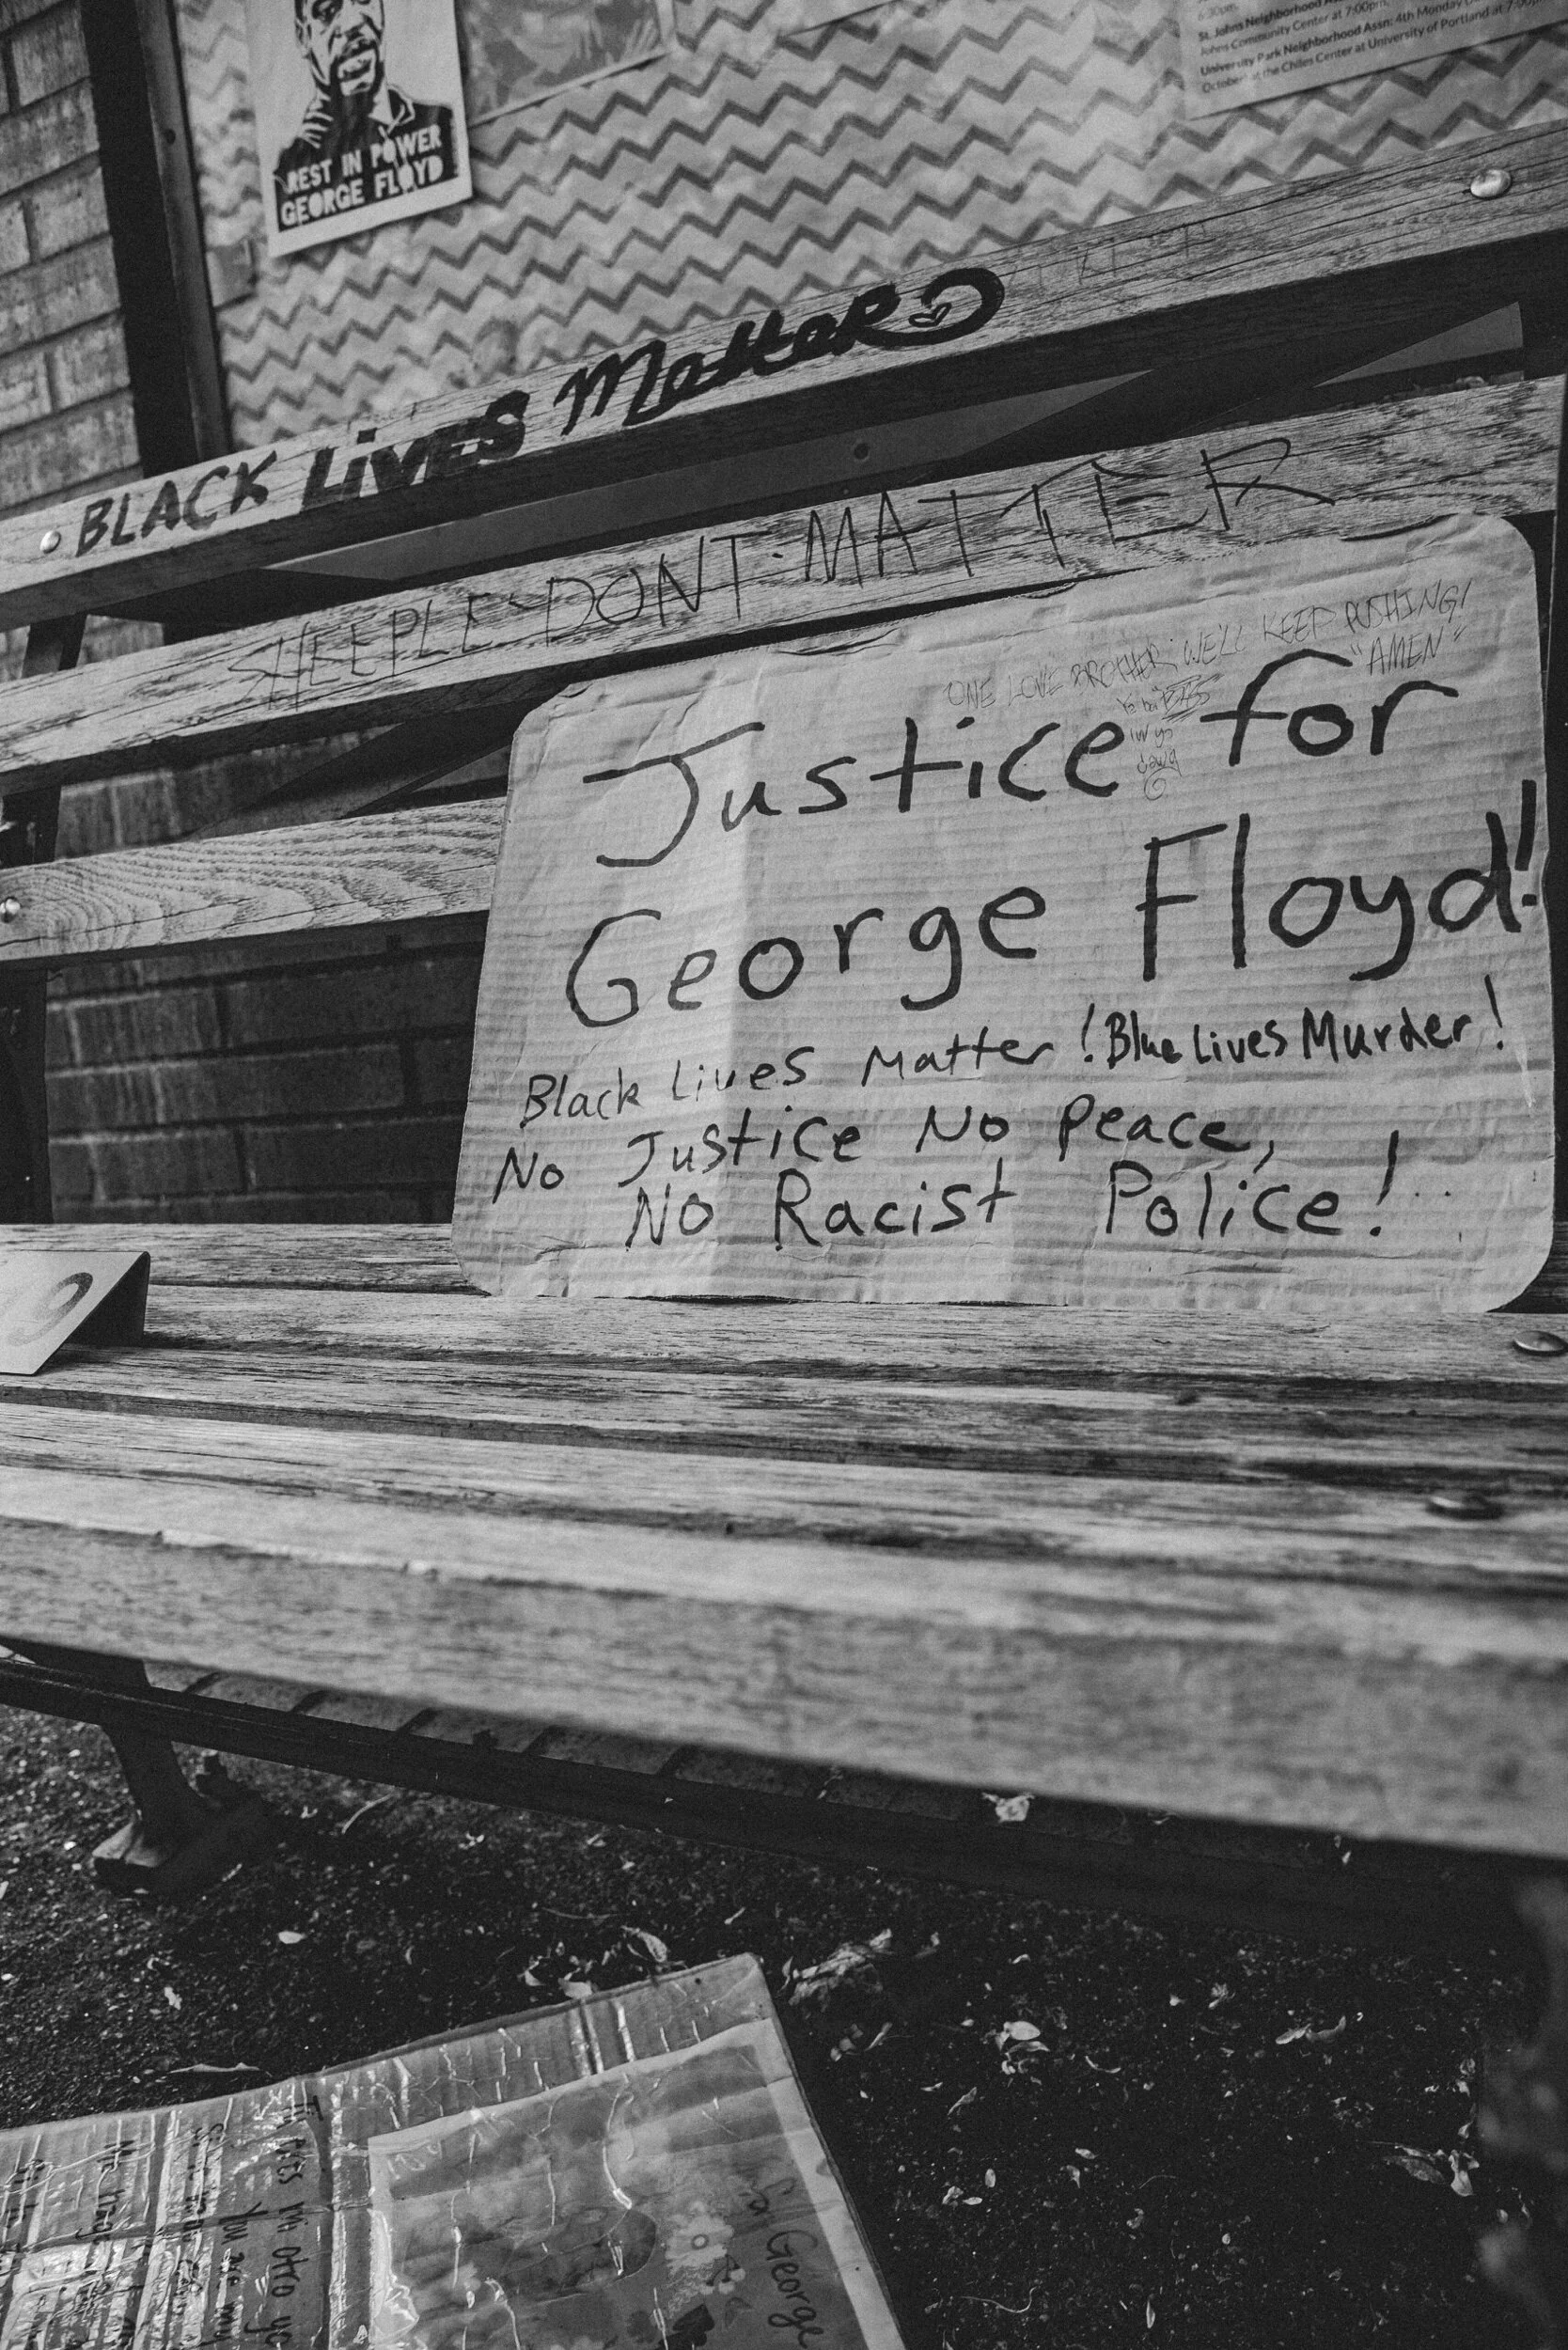 REST IN POWER
GEORGE FLOYD
St. Johns Neighborhood
Johns Community Center at 7:00pm.
University Park Neighborhood Assn: 4th Monday
October at the Chiles Center at University of Portland at
BLACK LIVES MatteR
SHEEPLE DONT MATTER
ONE LOVE BROTHER WE'LL KEEP PUSHING!
"AMEN"
Justice for
George Floyd!
Black Lives Matter! Blue Lives Murder!
No Justice No Peace,
No Racist Police!
George